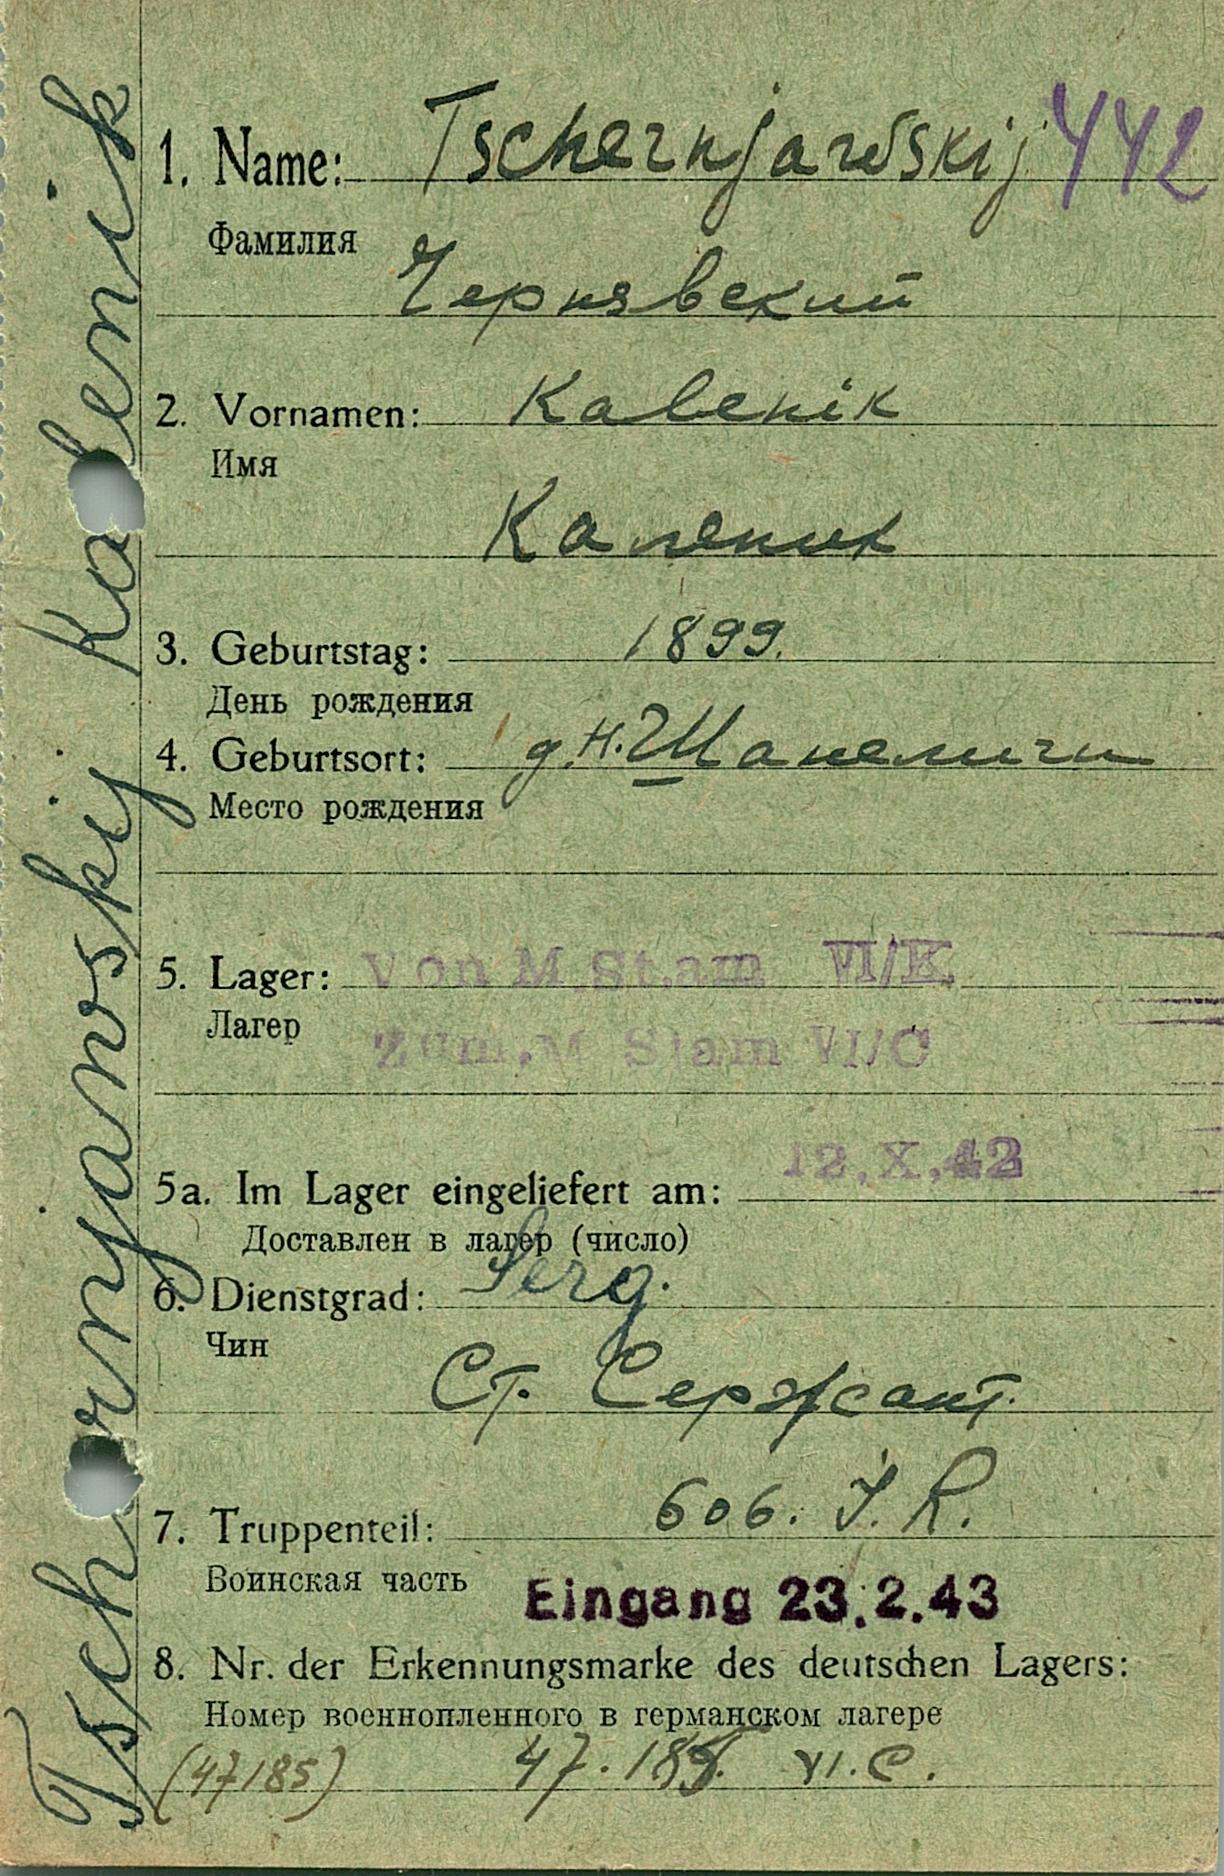 Tschernjavskij Kalenik
1. Name: Tschernjawskij 442
Фамилия
Чернявский
2. Vornamen: Kalenik
Имя
Каленик
3. Geburtstag: 1899.
День рождения
4. Geburtsort: д.н. Шапеличи
Место рождения
5. Lager: Von M. Stam VI/K
Лагер
Zum. M Stam VI/C
12.X.42
5a. Im Lager eingeliefert am:
Доставлен в лагер (число)
6. Dienstgrad: Serg.
Чин
Ст. Сержант.
7. Truppenteil: 606. I.R.
Воинская часть
Eingang 23.2.43
8. Nr. der Erkennungsmarke des deutschen Lagers:
Номер военнопленного в германском лагере
(47185) 47.185. VI.C.